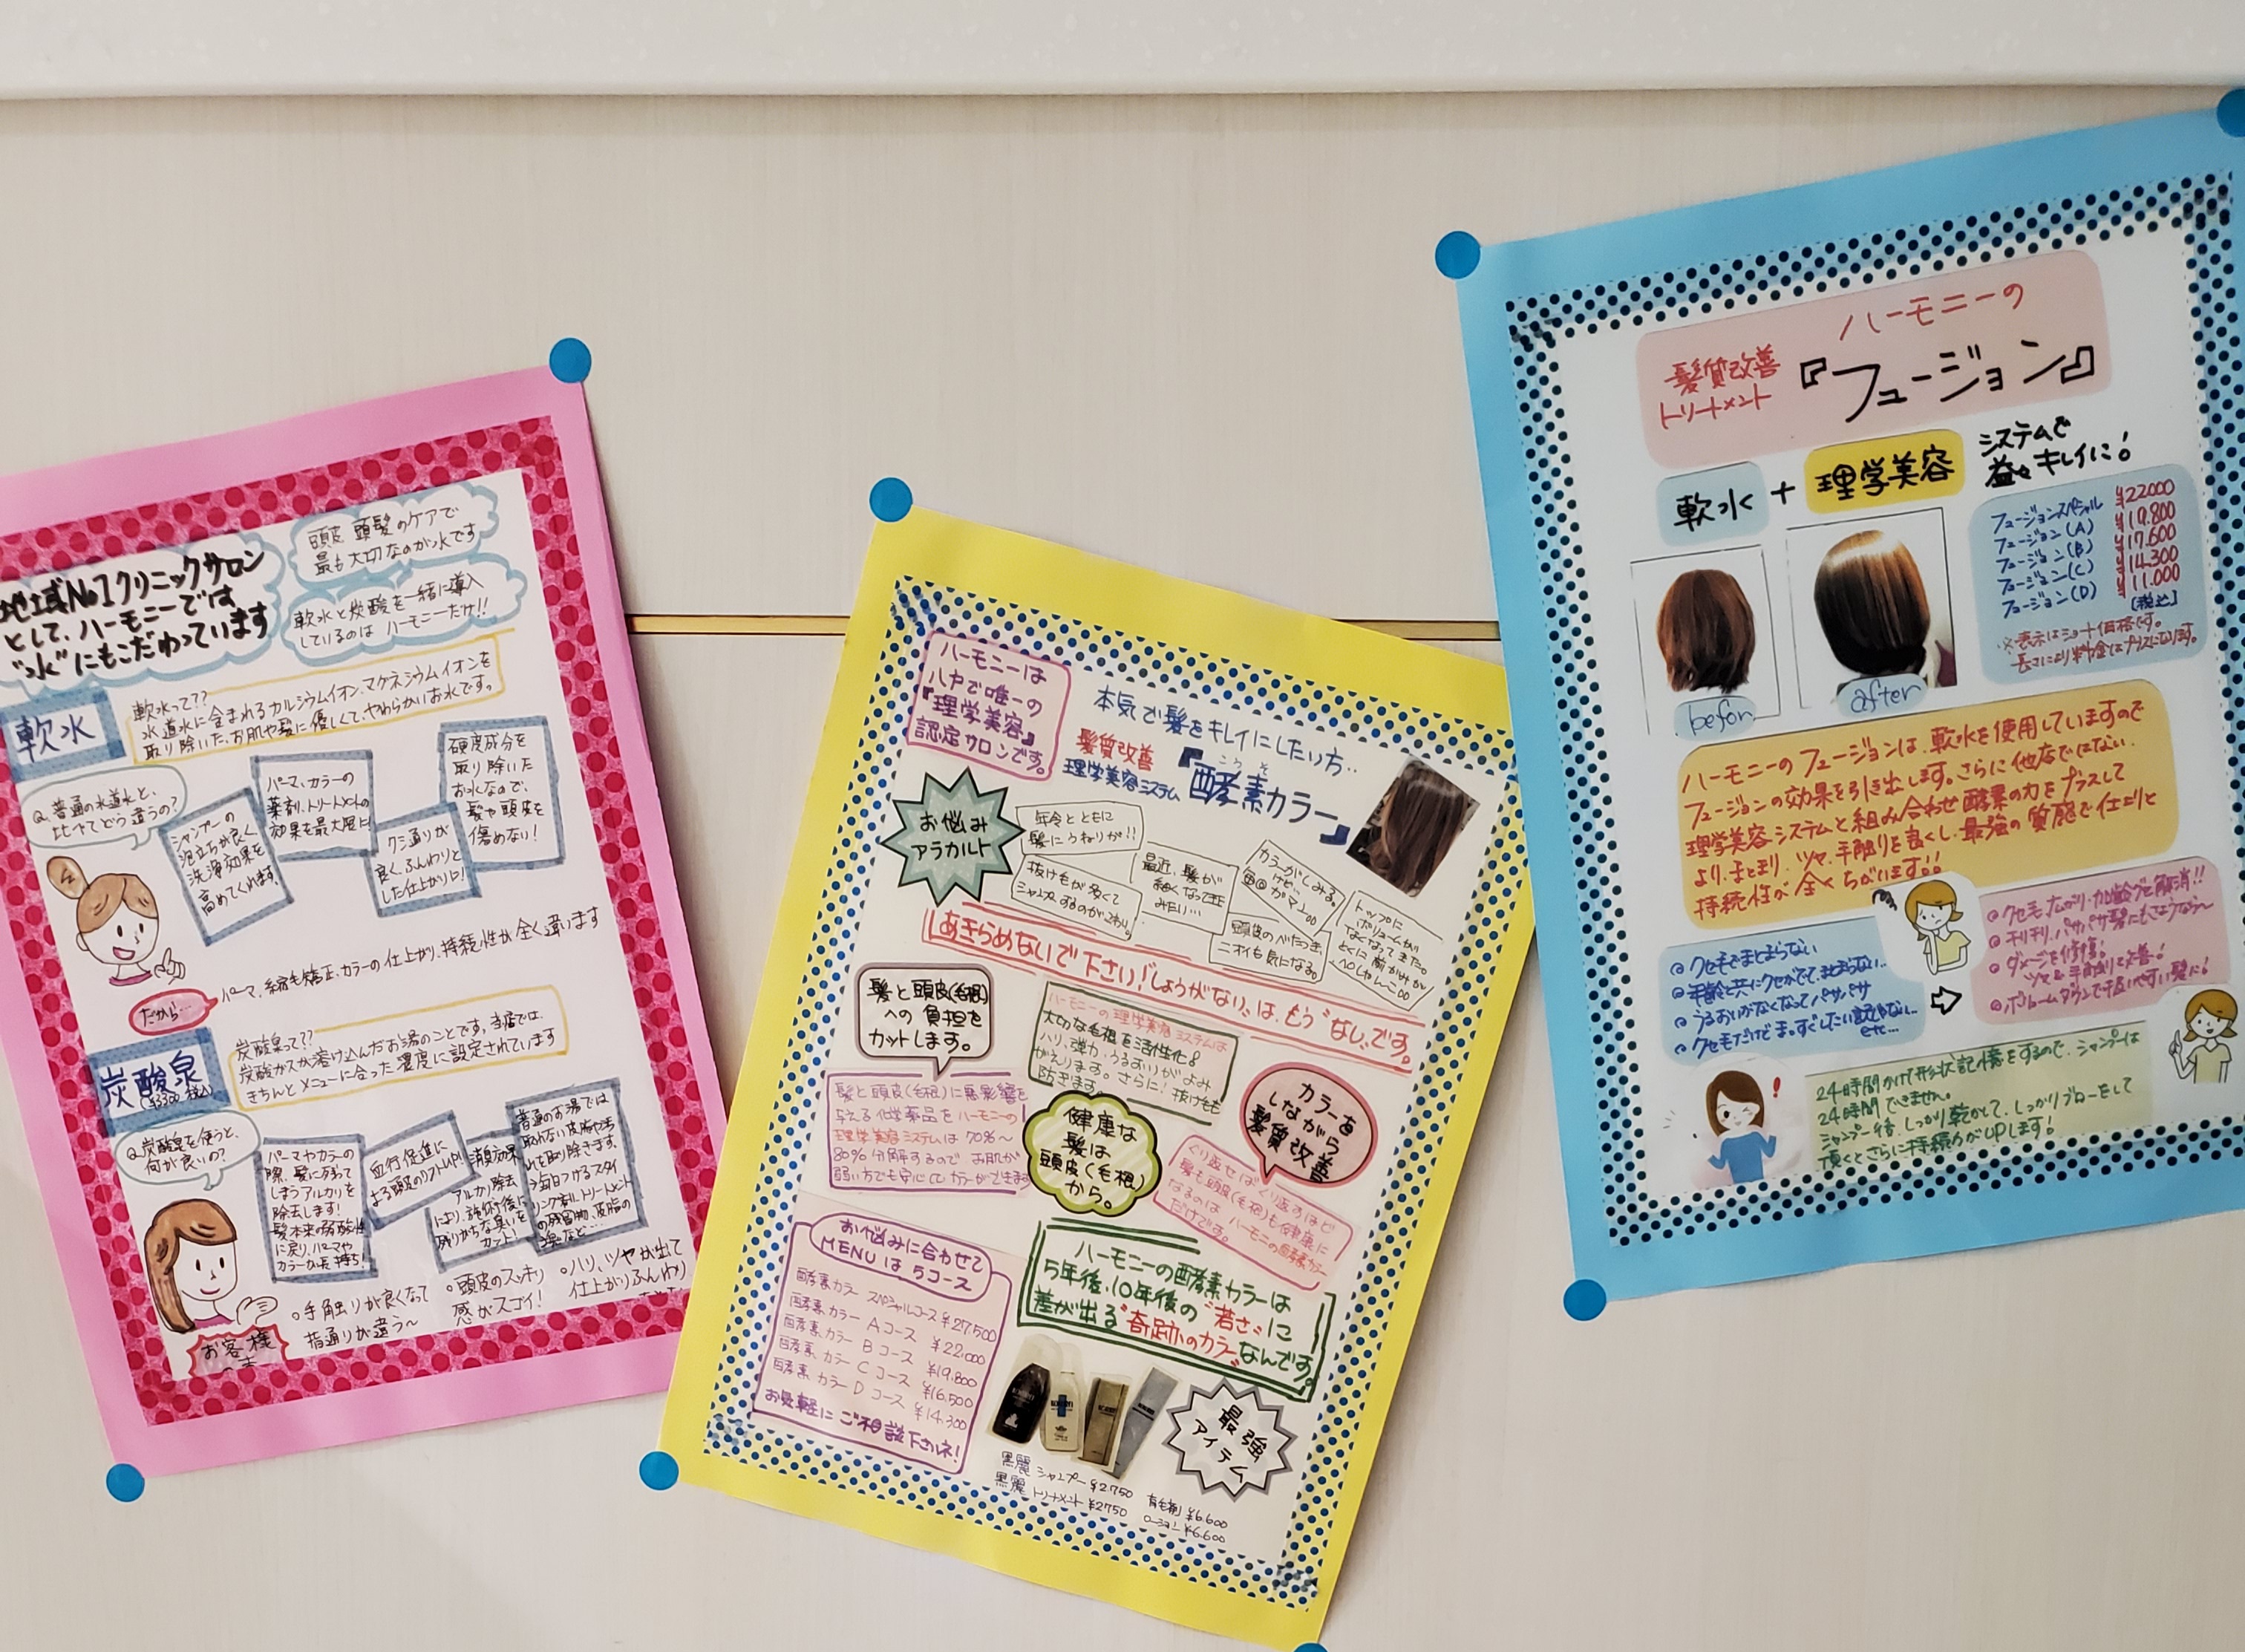 地域No1クリニックサロン
として、ハーモニーでは
"水"にもこだわっています
頭皮、頭髪のケアで
最も大切なのが水です
軟水と炭酸を一緒に導入
しているのはハーモニーだけ!!
軟水
軟水って??
水道水に含まれるカルシウムイオン、マグネシウムイオンを
取り除いた、お肌や髪に優しくて、やわらかいお水です。
Q.普通の水道水と、
比べてどう違うの?
シャンプーの
泡立ちが良く
洗浄効果を
高めてくれます。
パーマ、カラーの
薬剤、トリートメントの
効果を最大限に!
クシ通りが
良く、ふんわりと
した仕上がりに!
硬度成分を
取り除いた
お水なので、
髪や頭皮を
傷めない!
だから…
パーマ、縮毛矯正、カラーの仕上がり、持続性が全く違います
炭酸泉
(¥3300 税込)
炭酸泉って??
炭酸ガスが溶け込んだお湯のことです。当店では、
きちんとメニューに合った濃度に設定されています
Q.炭酸泉を使うと、
何が良いの?
パーマやカラーの
際、髪に残って
しまうアルカリを
除去します!
髪本来の弱酸性
に戻り、パーマや
カラーが長持ち!
血行促進に
よる頭皮のリフトUP!
消臭効果
アルカリ除去
により、施術後に
残りがちな臭いを
カット!
普通のお湯では
取れない皮脂や汚
れを取り除きます。
○手触りが良くなって
指通りが違う〜
○頭皮のスッキリ
感がスゴイ!
○ハリ、ツヤが出て
仕上がりふんわり
お客様
ハーモニーは
八中で唯一の
『理学美容』
認定サロンです。
本気で髪をキレイにしたい方‥
髪質改善
理学美容システム
『酵素カラー』
こうそ
お悩み
アラカルト
年令とともに
髪にうねりが!!
抜け毛が多くて
シャンプーするのがこわい。
最近、髪が
細くなってきた
みたい…
カラーがしみる。
けど…
毎回ガマン。。
頭皮のべたつき、
ニオイも気になる。
トップに
ボリュームが
なくなってきた。
とくに前がみが
ペロしゃんこ。。
あきらめないで下さい!"しょうがない、は、もう"なし、です。
髪と頭皮(毛根)
への負担を
カットします。
髪と頭皮(毛根)に悪影響を
与える化学薬品をハーモニーの
理学美容システムは70%〜
80%分解するので お肌が
弱い方でも安心してカラーができます
ハーモニーの理学美容システムは
大切な毛根を活性化し
ハリ、弾力、うるおいがよみ
がえります。さらに!抜け毛も
防ぎます。
健康な
髪は
頭皮(毛根)
から。
カラーを
しながら
髪質改善
くり返せばくり返すほど
髪も頭皮(毛根)も健康に
なるのは ハーモニーの酵素カラー
だけです。
お悩みに合わせて
MENUは5コース
酵素カラー スペシャルコース ¥27,500
酵素カラー Aコース ¥22,000
酵素カラー Bコース ¥19,800
酵素カラー Cコース ¥16,500
酵素カラー Dコース ¥14,300
お気軽にご相談下さいネ!
ハーモニーの酵素カラーは
5年後、10年後の"若さ"に
差が出る"奇跡のカラー"なんです。
最強
アイテム
黒麗 シャンプー ¥2,750
黒麗 トリートメント ¥2750
育毛剤 ¥6,600
ローション ¥6,600
ハーモニーの
髪質改善
トリートメント
『フュージョン』
軟水+理学美容
システムで
益々キレイに!
フュージョンスペシャル ¥22000
フュージョン(A) ¥19.800
フュージョン(B) ¥17.600
フュージョン(C) ¥14.300
フュージョン(D) ¥11.000
[税込]
※表示はショート価格です。
長さにより料金はプラスになります。
befor
after
ハーモニーのフュージョンは、軟水を使用していますので
フュージョンの効果を引き出します。さらに他店でにない、
理学美容システムと組み合わせ酵素の力をプラスして
より、まとまり、ツヤ、手触りを良くし、最強の質感で仕上りと
持続性が全くちがいます!!
◎クセ毛でまとまらない
◎年齢と共にクセがでてまとまらない…
◎うるおいがなくなってパサパサ
◎クセ毛だけどまっすぐしたい訳じゃない…
etc…
◎クセ毛、広がり、加齢グセ解消!!
◎チリチリ、パサパサ髪にもさようなら〜
◎ダメージを修復!
ツヤ&手触り改善!
◎ボリュームダウンで扱いやすい髪に!
24時間かけて形状記憶をするので、シャンプーは
24時間できません。
シャンプー後、しっかり乾かして、しっかりブローをして
頂くとさらに持続力がUPします!